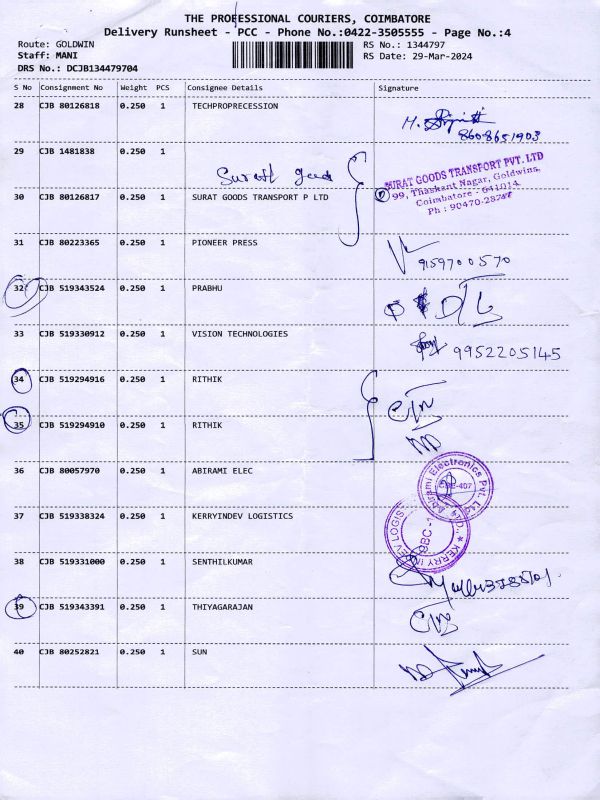 THE PROFESSIONAL COURIERS, COIMBATORE
Delivery Runsheet - PCC - Phone No.:0422-3505555 - Page No.:4
Route: GOLDWIN RS No.: 1344797
Staff: MANI RS Date: 29-Mar-2024
DRS No.: DCJB134479704
S No Consignment No Weight PCS Consignee Details Signature
28 CJB 80126818 0.250 1 TECHPROPRECESSION
8608651903
29 CJB 1481838 0.250 1
Surat goods
SURAT GOODS TRANSPORT PVT. LTD
99, Thaskant Nagar, Goldwins,
Coimbatore - 641014
Ph : 90470-28747
30 CJB 80126817 0.250 1 SURAT GOODS TRANSPORT P LTD
31 CJB 80223365 0.250 1 PIONEER PRESS
9159700570
32 CJB 519343524 0.250 1 PRABHU
33 CJB 519330912 0.250 1 VISION TECHNOLOGIES
9952205145
34 CJB 519294916 0.250 1 RITHIK
35 CJB 519294910 0.250 1 RITHIK
36 CJB 80057970 0.250 1 ABIRAMI ELEC
Abirami Electronics Pvt. Ltd
37 CJB 519338324 0.250 1 KERRYINDEV LOGISTICS
38 CJB 519331000 0.250 1 SENTHILKUMAR
39 CJB 519343391 0.250 1 THIYAGARAJAN
40 CJB 80252821 0.250 1 SUN